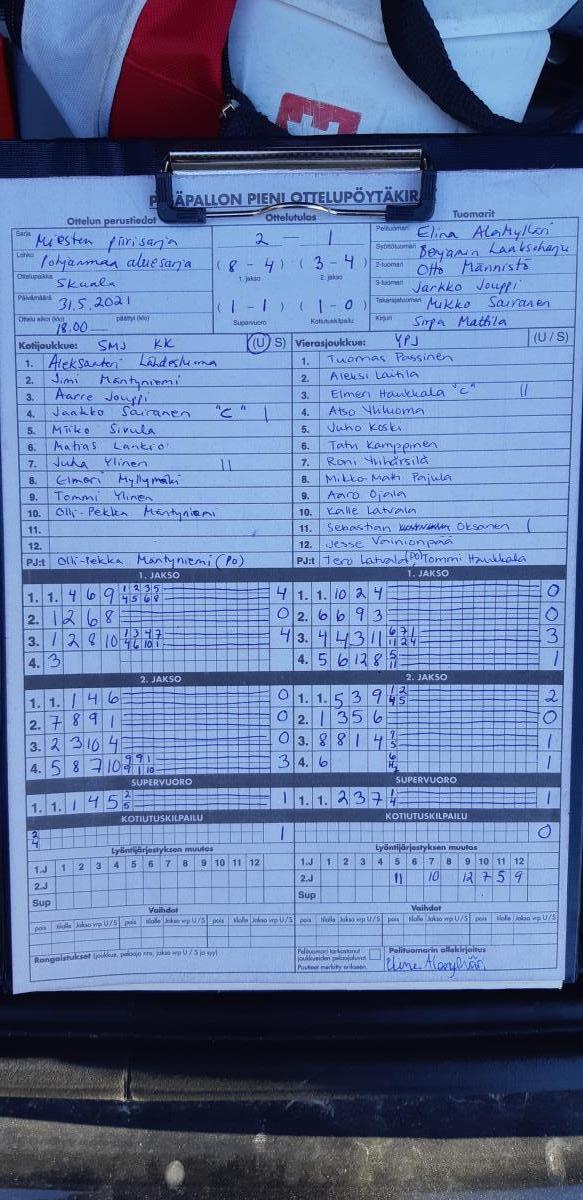 PESÄPALLON PIENI OTTELUPÖYTÄKIRJA
Ottelun perustiedot
Sarja Miesten piirisarja
Lohko Pohjanmaa aluesarja
Ottelupaikka Skaala
Päivämäärä 31.5.2021
Ottelu alkoi (klo) 18.00 päättyi (klo)
Ottelutulos
2 — 1
(8 - 4) (3 - 4)
1. jakso 2. jakso
(1 - 1) (1 - 0)
Supervuoro Kotiutuskilpailu
Tuomarit
Pelituomari Elina Alamylläri
Syöttötuomari Benjamin Laaksoharju
2-tuomari Otto Männistö
3-tuomari Jarkko Jouppi
Takarajatuomari Mikko Sairanen
Kirjuri Sirpa Mattila
Kotijoukkue: SMJ KK (U / S)
1. Aleksanteri Lähdesluoma
2. Jimi Mäntyniemi
3. Aarre Jouppi
4. Jaakko Sairanen "C" |
5. Miiko Sivula
6. Matias
7. Juha Ylinen ||
8. Elmeri Myllymäki
9. Tommi Ylinen
10. Olli-Pekka Mäntyniemi
11.
12.
PJ:t Olli-Pekka Mäntyniemi (PO)
Vierasjoukkue: YPJ (U / S)
1. Tuomas Passinen
2. Aleksi Lautila
3. Elmeri Haukkala "C" ||
4. Atso Yliluoma
5. Juho Koski
6. Tatu Kamppinen
7. Roni Ylihärsilä
8. Mikko-Matti Pajula
9. Aaro Ojala
10. Kalle Latvala
11. Sebastian Oksanen |
12. Jesse Vainionpää
PJ:t Tero Latvala (PO) Tommi Haukkala
1. JAKSO
1. 1. 4 6 9 1 2 3 5 4 5 6 8 4
2. 1 2 6 8 0
3. 1 2 8 10 1 3 4 7 4 6 10 1 4
4. 3
1. JAKSO
1. 1. 10 2 4 0
2. 6 6 9 3 0
3. 4 4 3 11 6 7 1 11 2 4 3
4. 5 6 12 8 5 11 1
2. JAKSO
1. 1. 1 4 6 0
2. 7 8 9 1 0
3. 2 3 10 4 0
4. 5 8 7 10 9 9 1 9 1 10 3
2. JAKSO
1. 1. 5 3 9 1 2 4 5 2
2. 1 3 5 6 0
3. 8 8 1 4 7 5 1
4. 6 1
SUPERVUORO
1. 1. 1 4 5 2 5 1
SUPERVUORO
1. 1. 2 3 7 1 4 1
KOTIUTUSKILPAILU
2 4 1
KOTIUTUSKILPAILU
0
Lyöntijärjestyksen muutos
1.J 1 2 3 4 5 6 7 8 9 10 11 12
2.J
Sup
Lyöntijärjestyksen muutos
1.J 1 2 3 4 5 6 7 8 9 10 11 12
2.J 11 10 12 7 5 9
Sup
Vaihdot
pois tilalle Jakso vrp U / S pois tilalle Jakso vrp U / S
Vaihdot
pois tilalle Jakso vrp U / S pois tilalle Jakso vrp U / S
Rangaistukset (joukkue, pelaaja nro, jakso vrp U / S ja syy)
Pelituomari tarkastanut joukkueiden pelaajaluvat
Puutteet merkitty erikseen.
Pelituomarin allekirjoitus
Elina Alamylläri